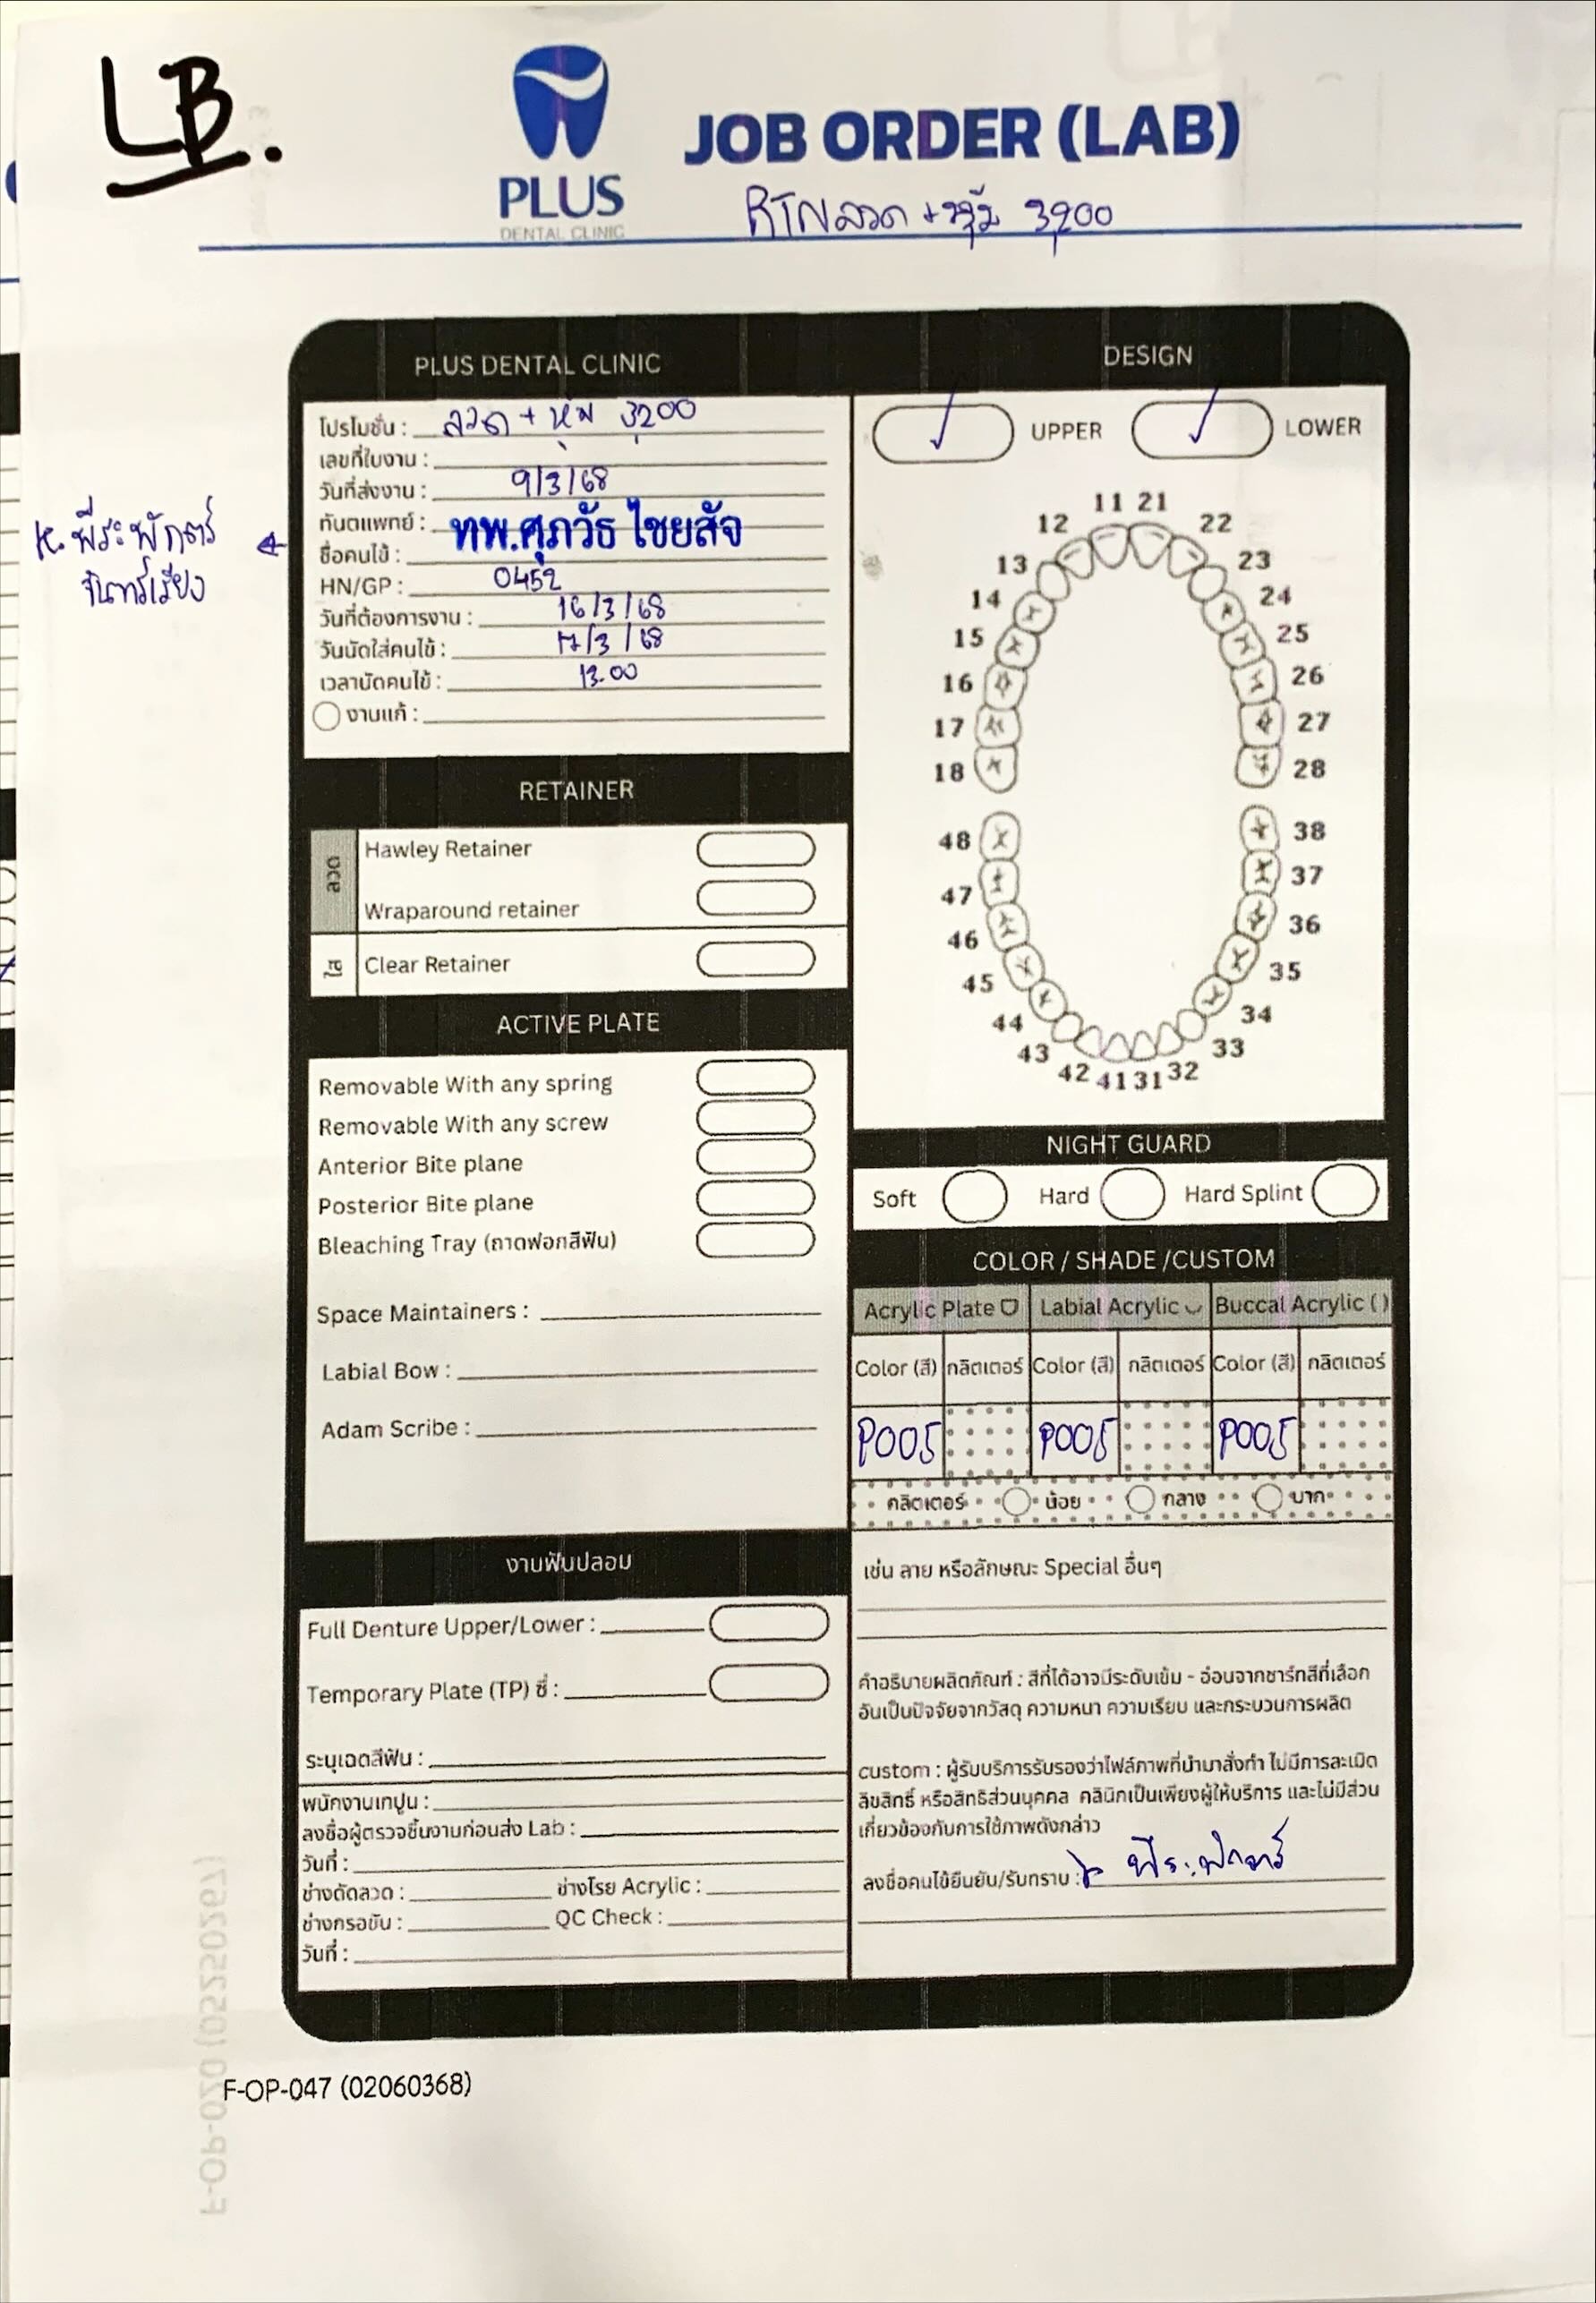 LB.
PLUS
DENTAL CLINIC
JOB ORDER (LAB)
RTNลวด + หุ้ม 3,200
PLUS DENTAL CLINIC
โปรโมชั่น : ลวด + หุ้ม 3,200
เลขที่ใบงาน :
วันที่ส่งงาน : 9/3/68
ทันตแพทย์ : ทพ.ศุภวัธ ไชยสัจ
ชื่อคนไข้ :
K. พีระพักตร์
จันทร์เรียง
HN/GP : 0452
วันที่ต้องการงาน : 16/3/68
วันนัดใส่คนไข้ : 17/3/68
เวลานัดคนไข้ : 13.00
งานแก้ :
RETAINER
ลวด
Hawley Retainer
Wraparound retainer
ใส
Clear Retainer
ACTIVE PLATE
Removable With any spring
Removable With any screw
Anterior Bite plane
Posterior Bite plane
Bleaching Tray (ถาดฟอกสีฟัน)
Space Maintainers :
Labial Bow :
Adam Scribe :
งานฟันปลอม
Full Denture Upper/Lower :
Temporary Plate (TP) ซี่ :
ระบุเฉดสีฟัน :
พนักงานเทปูน :
ลงชื่อผู้ตรวจชิ้นงานก่อนส่ง Lab :
วันที่ :
ช่างดัดลวด : ช่างโรย Acrylic :
ช่างกรอขัน : QC Check :
วันที่ :
DESIGN
UPPER LOWER
11 21
12 22
13 23
14 24
15 25
16 26
17 27
18 28
48 38
47 37
46 36
45 35
44 34
43 33
42 41 31 32
NIGHT GUARD
Soft Hard Hard Splint
COLOR / SHADE /CUSTOM
Acrylic Plate Labial Acrylic Buccal Acrylic ( )
Color (สี) กลิตเตอร์ Color (สี) กลิตเตอร์ Color (สี) กลิตเตอร์
P005 P005 P005
กลิตเตอร์ น้อย กลาง มาก
เช่น ลาย หรือลักษณะ Special อื่นๆ
คำอธิบายผลิตภัณฑ์ : สีที่ได้อาจมีระดับเข้ม - อ่อนจากชาร์ทสีที่เลือก
อันเป็นปัจจัยจากวัสดุ ความหนา ความเรียบ และกระบวนการผลิต
custom : ผู้รับบริการรับรองว่าไฟล์ภาพที่นำมาสั่งทำ ไม่มีการละเมิด
ลิขสิทธิ์ หรือสิทธิส่วนบุคคล คลินิกเป็นเพียงผู้ให้บริการ และไม่มีส่วน
เกี่ยวข้องกับการใช้ภาพดังกล่าว
ลงชื่อคนไข้ยืนยัน/รับทราบ : พีระพักตร์
F-OP-047 (02060368)
F-OP-020 (05250267)